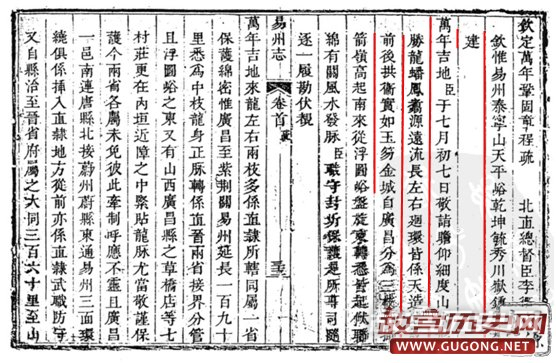 欽定萬年鞏固章程疏 北直總督臣李衛
欽惟易州泰寧山天平峪乾坤毓秀川嶽鍾
建
萬年吉地臣于七月初七日敬詣瞻仰細度山
勝龍蟠鳳翥源遠流長左右廻環皆係天造
前後拱衛實如玉笏金城自廣昌分為三
箭嶺高起南來從浮圖峪盤旋東轉悉皆起伏聯
綿有關風水發脉臣職守封圻保護是所專司隨
逐一履勘伏覩
易州志 卷首
萬年吉地來龍左右兩枝多係直隸所轄同屬一省
保護綿密惟廣昌至紫荊關易州延長一百九十
里悉為中枝龍身正脉轉係直晉兩省接界分管
且浮圖峪之東又有山西廣昌縣之草橋店等七
村莊更在內垣近障之中緊貼龍脉尤當敬謹保
護今兩省各屬未免彼此牽制呼應不靈且廣昌
一邑南連唐縣北接蔚州蔚縣東通易州三面環
繞俱係插入直隸地方從前亦係直隸武職防守
又自縣治至晉省府屬之大同三百六十里至山
故宫历史网
www.GUGONG.NET